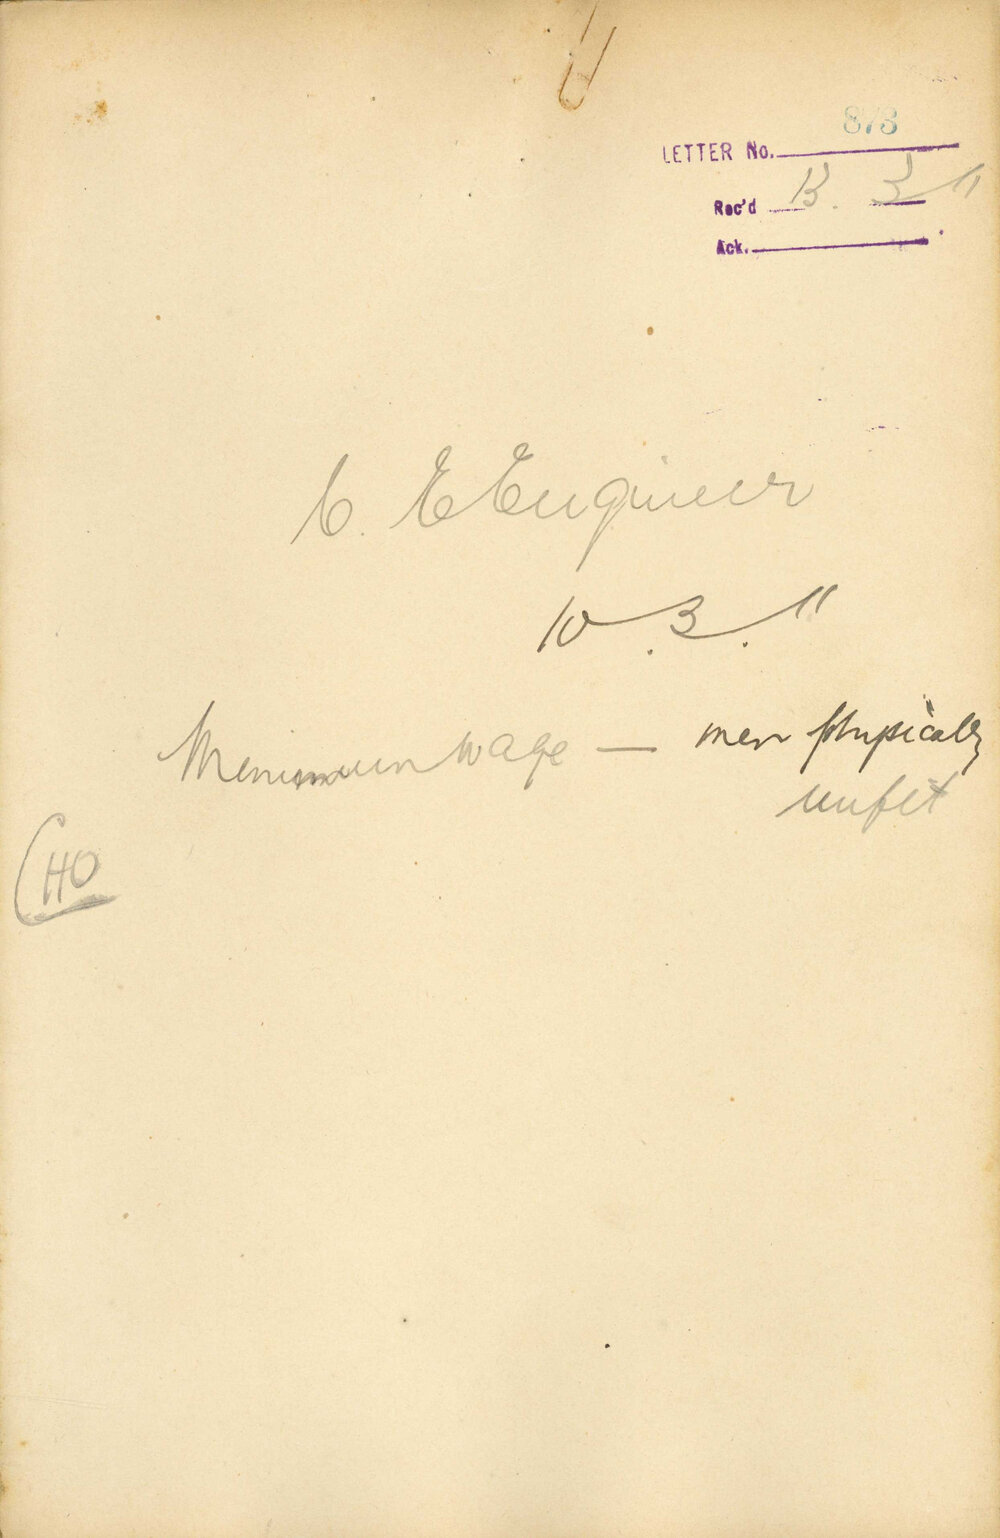 873
LETTER No.
Rec'd 13. 3 11
Ack.
C. E Engineer
10.3.11
Minimum wage — men physically
unfit
(HO